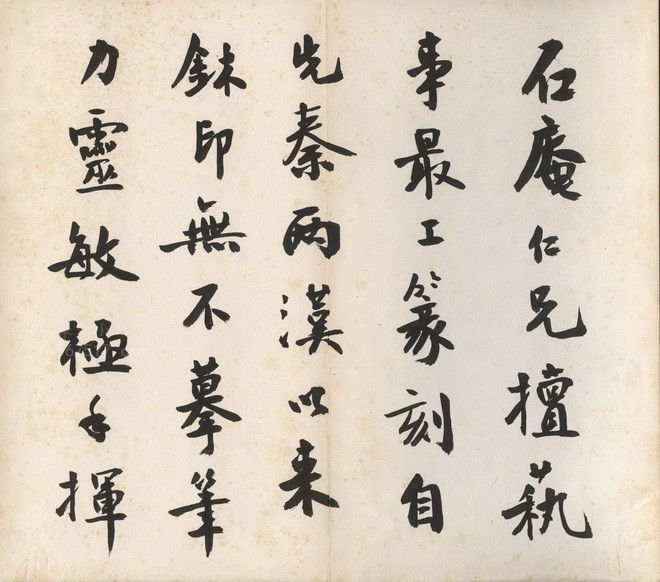 石庵仁兄擅藝
事最工篆刻自
先秦兩漢以来
鉥印無不摹筆
力靈敏極手揮